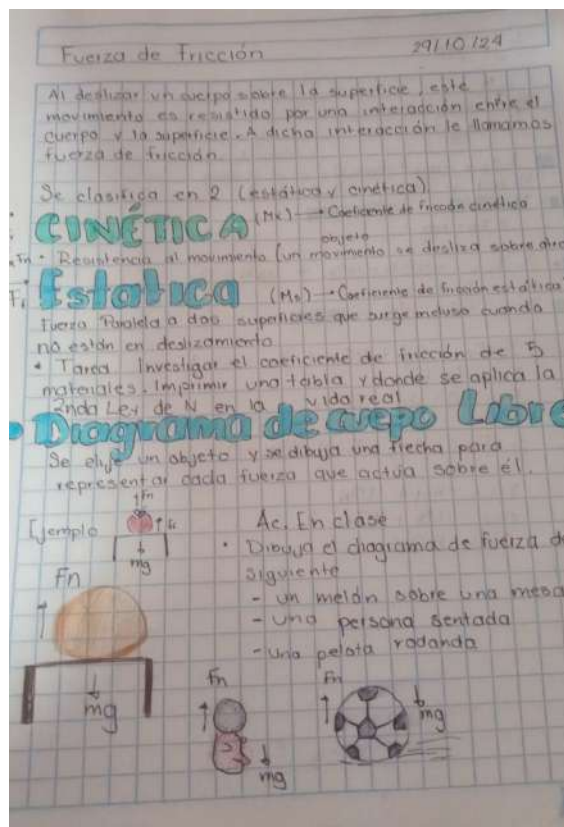 Fuerza de Fricción 29/10/24
Al deslizar un cuerpo sobre la superficie, este
movimiento es resistido por una interacción entre el
cuerpo y la superficie. A dicha interacción le llamamos
fuerza de fricción.
Se clasifica en 2 (estática y cinética)
CINÉTICA (Mk) → Coeficiente de fricción cinética
objeto
• Resistencia al movimiento (un movimiento se desliza sobre
Estatica (Ms) → Coeficiente de fricción estatica
Fuerza Paralela a dos superficies que surge incluso cuando
no están en deslizamiento
• Tarea Investigar el coeficiente de fricción de 5
materiales. Imprimir una tabla y donde se aplica la
2nda Ley de N en la vida real
• Diagrama de cuerpo Libre
Se elije un objeto y se dibuja una flecha para
representar cada fuerza que actúa sobre él.
Fn
Ejemplo
mg
Ac. En clase
• Dibuja el diagrama de fuerza d
siguiente
- un melón sobre una mesa
- una persona sentada
- una pelota rodando
Fn
mg
Fn
mg
Fn
mg